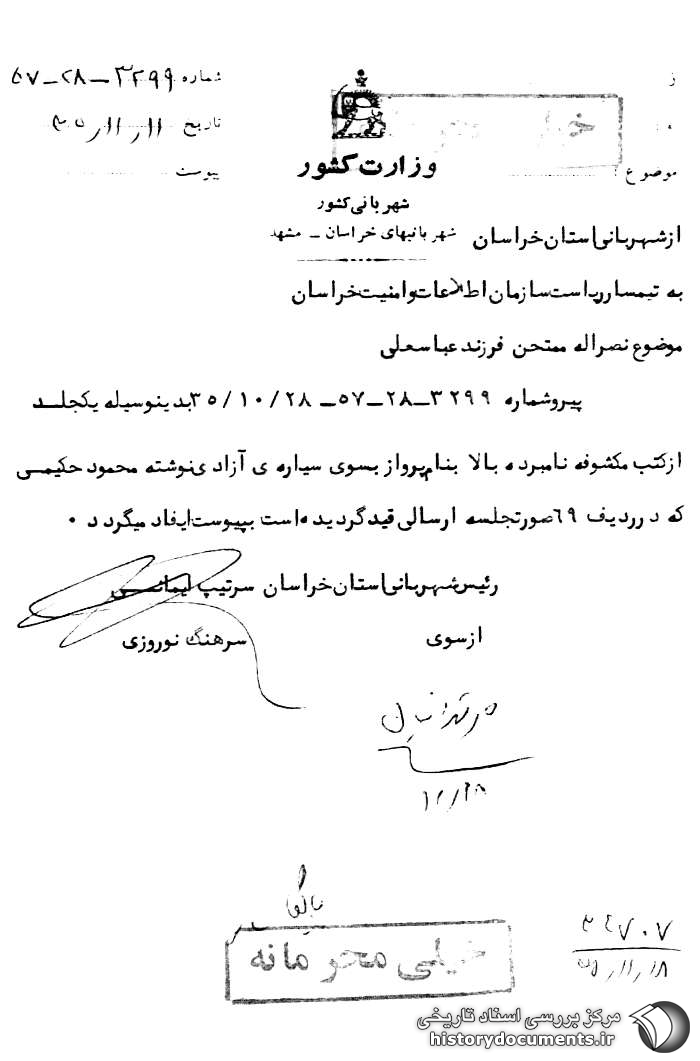 شماره ۳۲۹۹-۲۸-۵۷
تاریخ
پیوست
ز
موضوع
خیلی محرمانه
وزارت کشور
شهربانی کشور
شهربانیهای خراسان - مشهد
از شهربانی استان خراسان
به تیمسار ریاست سازمان اطلاعات و امنیت خراسان
موضوع نصراله ممتحن فرزند عباسعلی
پیرو شماره ۳۲۹۹-۲۸-۵۷- ۳۵/۱۰/۲۸ بدینوسیله یکجلد
از کتب مکشوفه نامبرده بالا بنام پرواز بسوی سیاره ی آزادی نوشته محمود حکیمی
که در ردیف ۶۹ صورتجلسه ارسالی قید گردیده است بپیوست ایفاد میگردد ۰
رئیس شهربانی استان خراسان سرتیپ ایمانی
از سوی
سرهنگ نوروزی
خیلی محرمانه
۳۴۷۰۷
مرکز بررسی اسناد تاریخی
historydocuments.ir